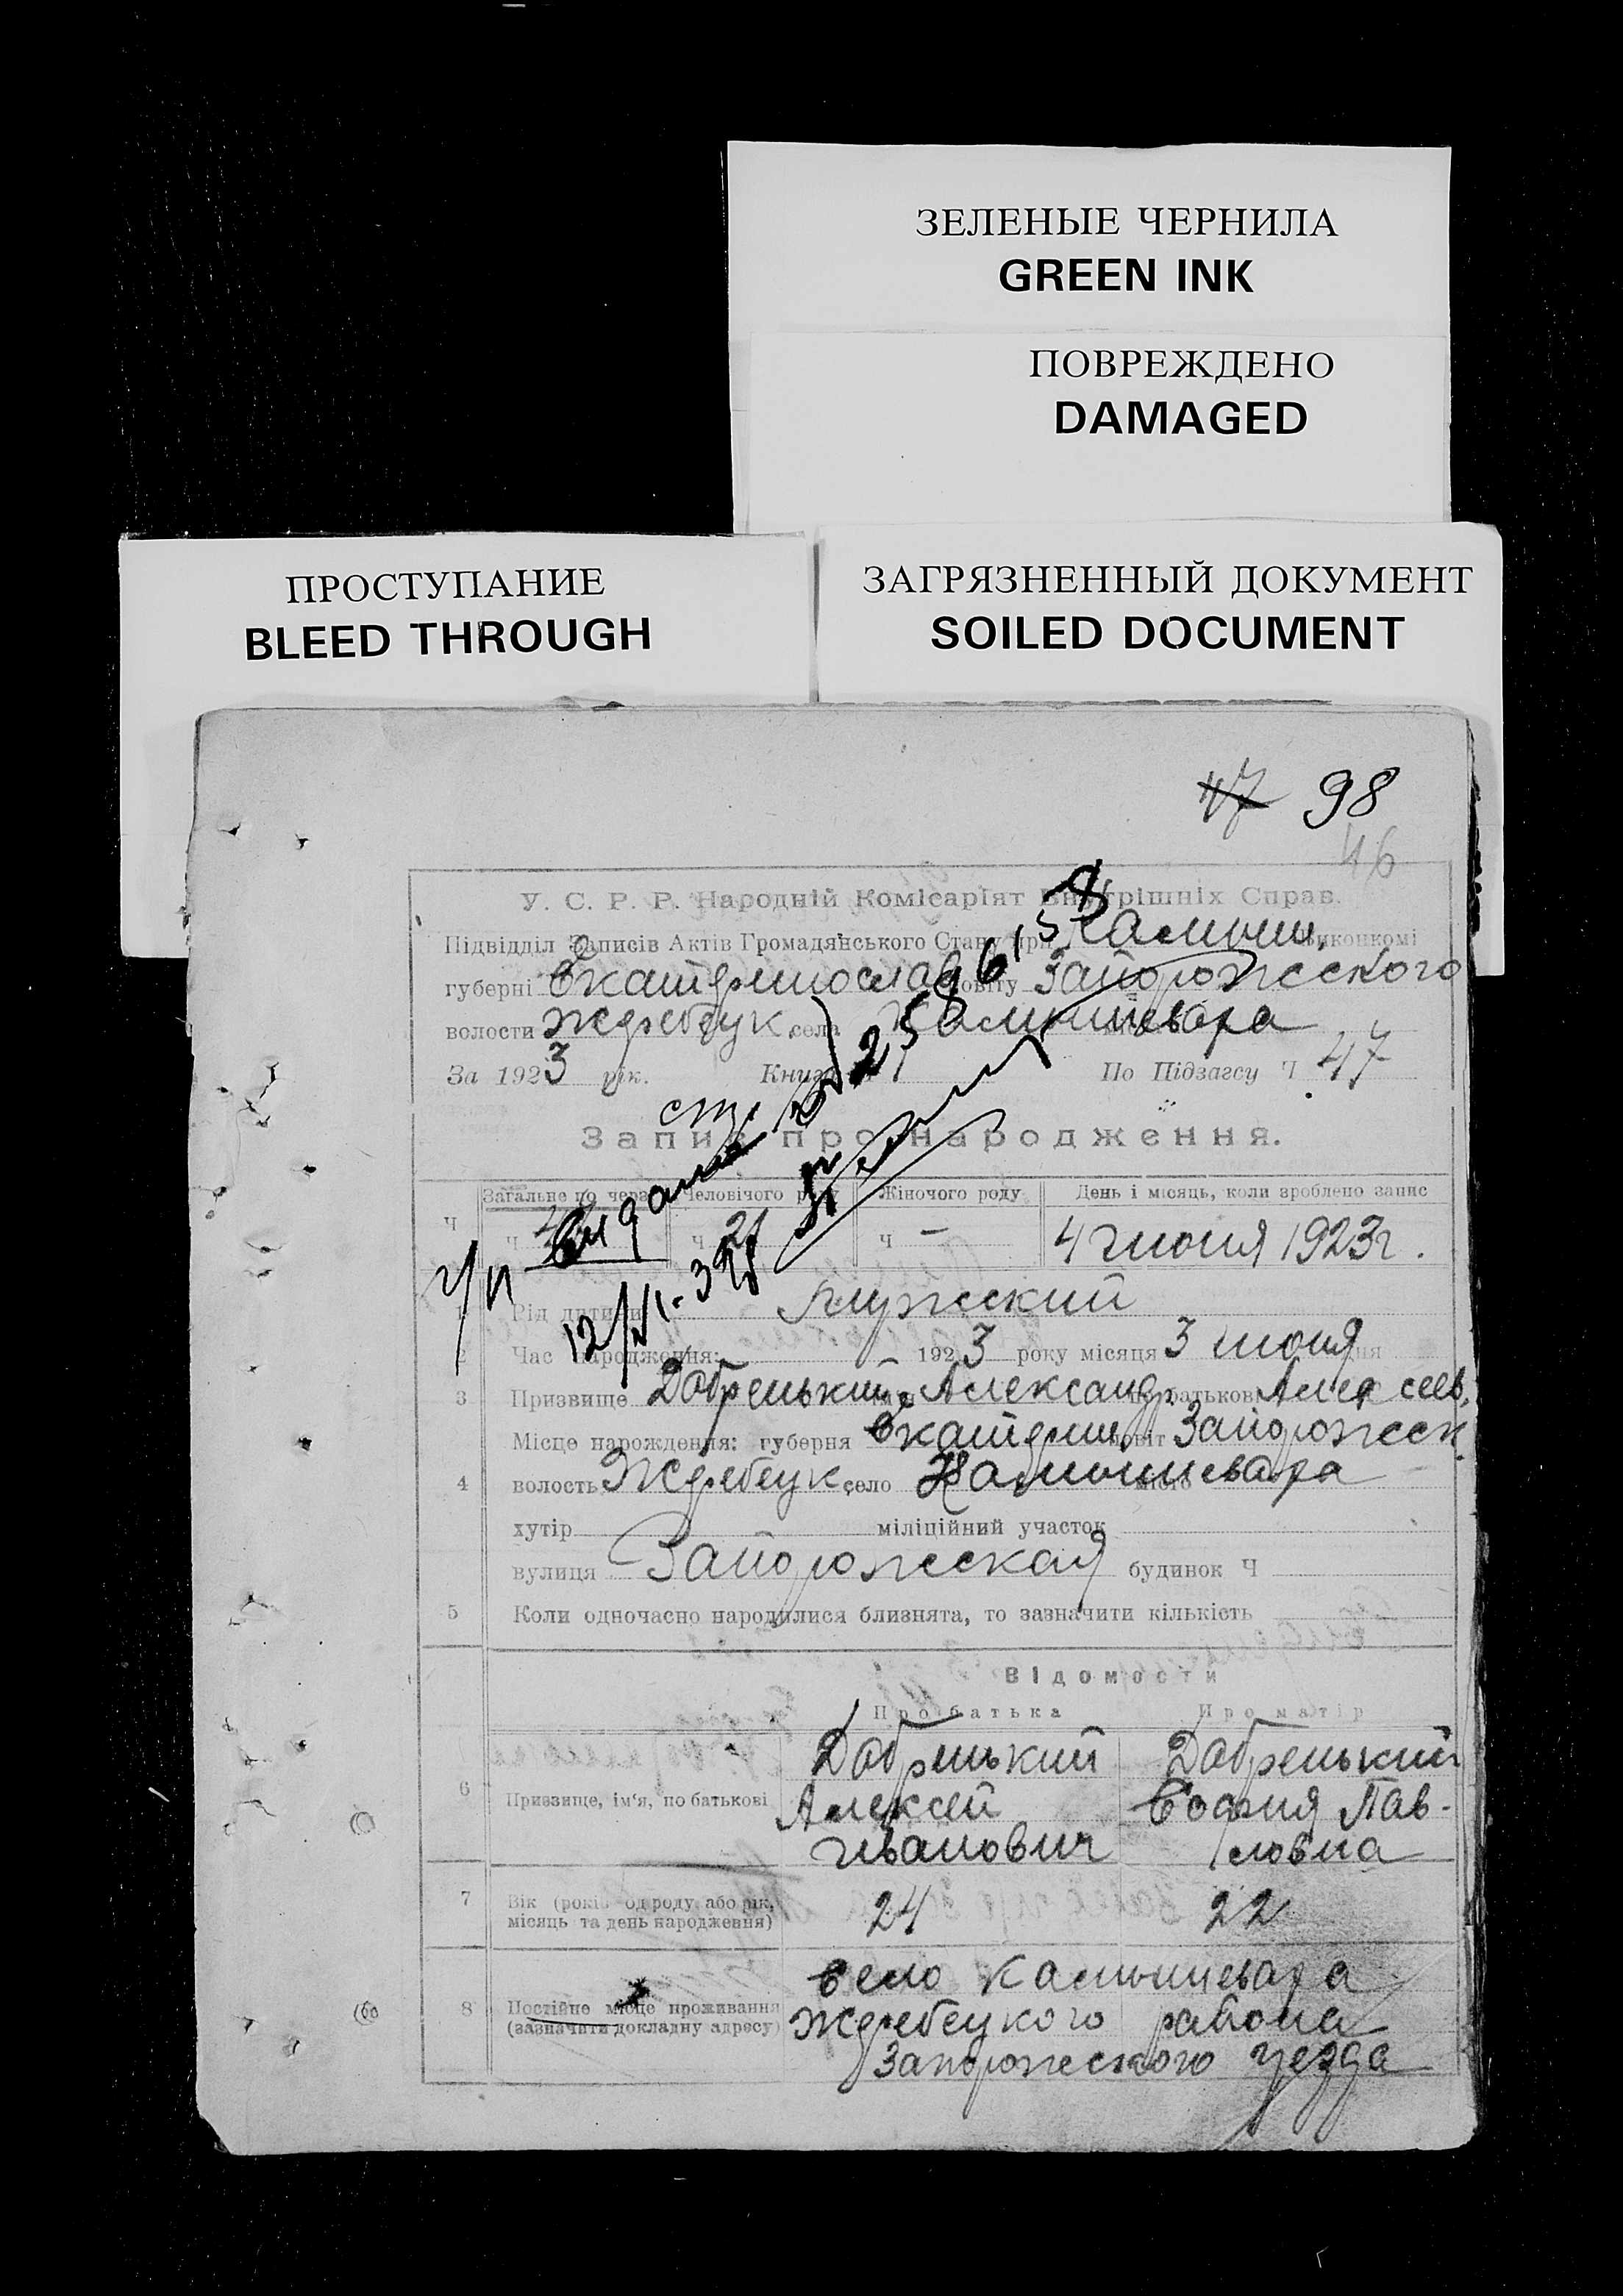 ЗЕЛЕНЫЕ ЧЕРНИЛА
GREEN INK
ПОВРЕЖДЕНО
DAMAGED
ПРОСТУПАНИЕ
BLEED THROUGH
ЗАГРЯЗНЕННЫЙ ДОКУМЕНТ
SOILED DOCUMENT
47 98
46
У. С. Р. Р. Народній Комісаріят Внутрішніх Справ.
Підвідділ Записів Актів Громадянського Стану при Камыш. виконкомі
губерні Екатеринослав повіту Запорожского
волости Жеребецк. села Камышеваха
За 1923 рік. Книга Ч 1 По Підзагсу Ч 47
Запис про народження.
Загальне по черзі Человічого роду Жіночого роду День і місяць, коли зроблено запис
Ч ч ч 21 ч — 4 июня 1923 г.
1 Рід дитини мужеский
2 Час народження: 1923 року місяця 3 июня дня
3 Призвище Добренький Александр по батькові Алексеев.
Місце нарождення: губерня Екатерин. повіт Запорожск.
4 волость Жеребецк. село Камышеваха місто
хутір міліційний участок
вулиця Запорожская будинок Ч
5 Коли одночасно народилися близнята, то зазначити кількість
Відомости
Про батька Про матір
6 Призвище, ім'я, по батькові
Добренький Добренький
Алексей София Пав-
Иванович ловна
7 Вік (років од роду або рік, місяць та день народження) 24 22
8 Постійне місце проживання (зазначити докладну адресу)
село Камышеваха
Жеребецкого района
Запорожского уезда